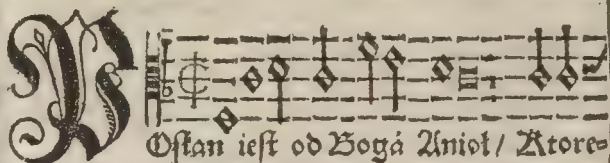 POſłan ieſt od Bogá Anioł/ Ktore⸗